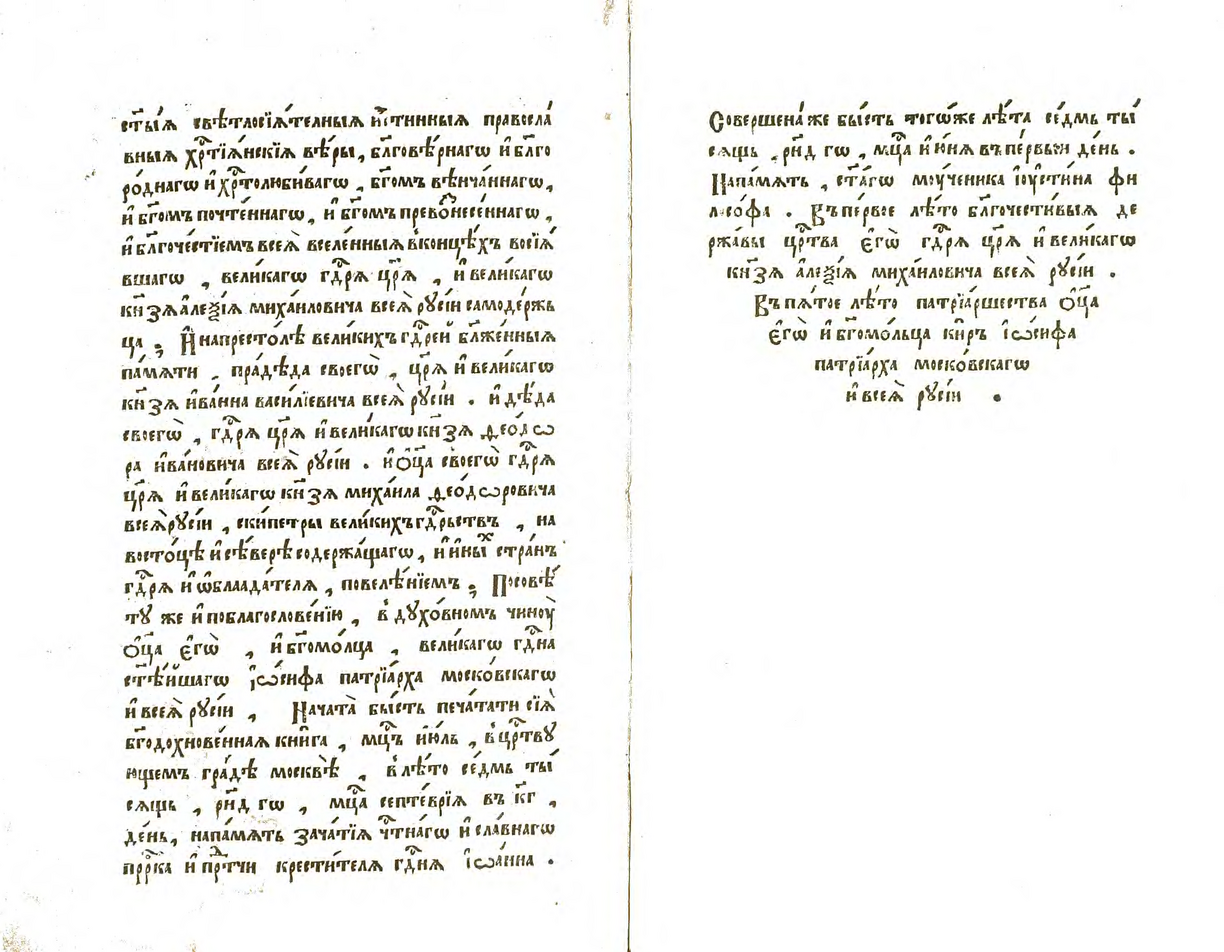 ст҃ы́ѧ свѣтлосїѧ́телныѧ и҆́стинныѧ правосла́
вныѧ хрⷭ҇тїѧ́нскїѧ вѣ́ры, бл҃говѣ́рнагѡ и҆ бл҃го
ро́днагѡ и҆ хрⷭ҇толюби́вагѡ , бг҃омъ вѣнча́ннагѡ,
и҆ бг҃омъ почте́ннагѡ, и҆ бг҃омъ превоⷥнесе́ннагѡ ,
и҆ бл҃гоче́стїемъ всеѧ̀ вселе́нныѧ в҆ конце́хъ восїѧ́
вшагѡ , вели́кагѡ гдⷭ҇рѧ цр҃ѧ̀ , и҆ вели́кагѡ
кн҃ зѧ а҆ле́ѯїѧ миха́иловича всеѧ̀ рꙋсі́и самоде́ржъ
ца . И҆ напресто́лѣ вели́кихъ гдⷭ҇рей бл҃же́нныѧ
па́мѧти . пра́дѣда своегѡ̀ , цр҃ѧ̀ и҆ вели́кагѡ
кн҃ зѧ и҆ва́нна васи́лїевича всеѧ̀ рꙋсі́и . и҆ дѣ́да
своегѡ̀ , гдⷭ҇рѧ цр҃ѧ̀ и҆ вели́кагѡ кн҃ зѧ ѳео́дѡ
ра и҆ва́новича всеѧ̀ рꙋсі́и . и҆ ѻ҆ц҃а̀ своегѡ̀ гдⷭ҇рѧ
цр҃ѧ̀ и҆ вели́кагѡ кн҃ зѧ миха́ила ѳео́дѡровича
всеѧ̀ рꙋсі́и , ски́петры вели́кихъ гдⷭ҇рьствъ , на
восто́цѣ и҆ сѣ́верѣ содержа́щагѡ, и҆ и҆ны́ⷯ стра́нъ
гдⷭ҇рѧ и҆ ѡ҆блаада́телѧ , повелѣ́нїемъ ; Посовѣ́
тꙋ же и҆ поблагослове́нїю , в҆ дꙋхо́вномъ чиноу̀
ѻ҆ц҃а̀ є҆гѡ̀ , и҆ бг҃омо́лца , вели́кагѡ гдⷭ҇на
ст҃ѣ́йшагѡ і҆ѡ́сифа патрїа́рха моско́вскагѡ
и҆ всеѧ̀ рꙋсі́и , Нача́та бы́сть печа́тати сїѧ̀
бг҃одохнове́ннаѧ кни́га , мцⷭ҇ъ и҆ю́ль , в҆ црⷭ҇твꙋ́
ющемъ гра́дѣ москвѣ̀ , в҆ лѣ́то се́дмь ты́
сѧщь , рн҃д гѡ , мцⷭ҇а септе́врїѧ въ кг҃ ,
де́нь, напа́мѧть зача́тїѧ чⷭ҇тна́гѡ и҆ сла́внагѡ
прⷪ҇рка и҆ прⷣтчи крести́телѧ гдⷭ҇нѧ і҆ѡа́нна .
Соверше́на же бы́сть тогѡ́же лѣ́та се́дмь ты́
сѧщь , рн҃д гѡ , мцⷭ҇а и҆ и҆ю́нѧ въ пе́рвыи де́нь .
Напа́мѧть , ст҃а́гѡ моу́ченика і҆оусти́на фи
лосо́фа . Въ пе́рвое лѣ́то бл҃гочести́выѧ де
ржа́вы црⷭ҇тва є҆гѡ̀ гдⷭ҇рѧ цр҃ѧ̀ и҆ вели́кагѡ
кн҃ зѧ а҆ле́ѯїѧ миха́иловича всеѧ̀ рꙋсі́и .
Въ пѧ́тое лѣ́то патрїа́ршества ѻ҆ц҃а̀
є҆гѡ̀ и҆ бг҃омо́льца ки́ръ і҆ѡ́сифа
патрїа́рха моско́вскагѡ
и҆ всеѧ̀ рꙋсі́и .